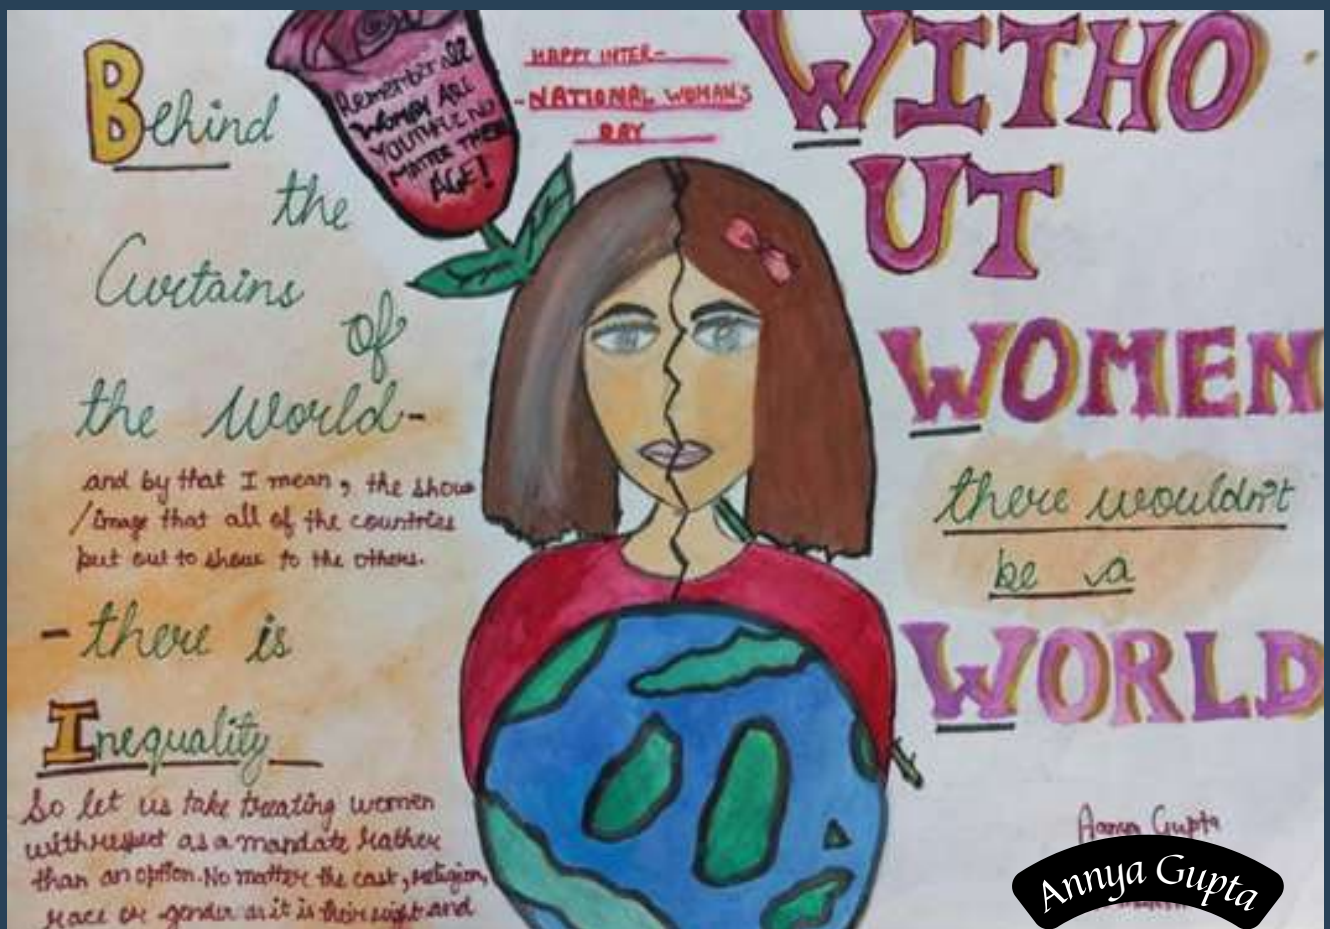 Behind
the
Curtains
of
the World-
and by that I mean, the show
/image that all of the countries
put out to show to the others.
- there is
Inequality
So let us take treating women
with respect as a mandate rather
than an option. No matter the cast, religion,
race or gender as it is their right and
Remember all
WOMAN ARE
YOUTHFUL NO
MATTER THEIR
AGE!
HAPPY INTER-
-NATIONAL WOMAN'S
DAY
WITHO
UT
WOMEN
there wouldn't
be a
WORLD
Gupta
Annya Gupta